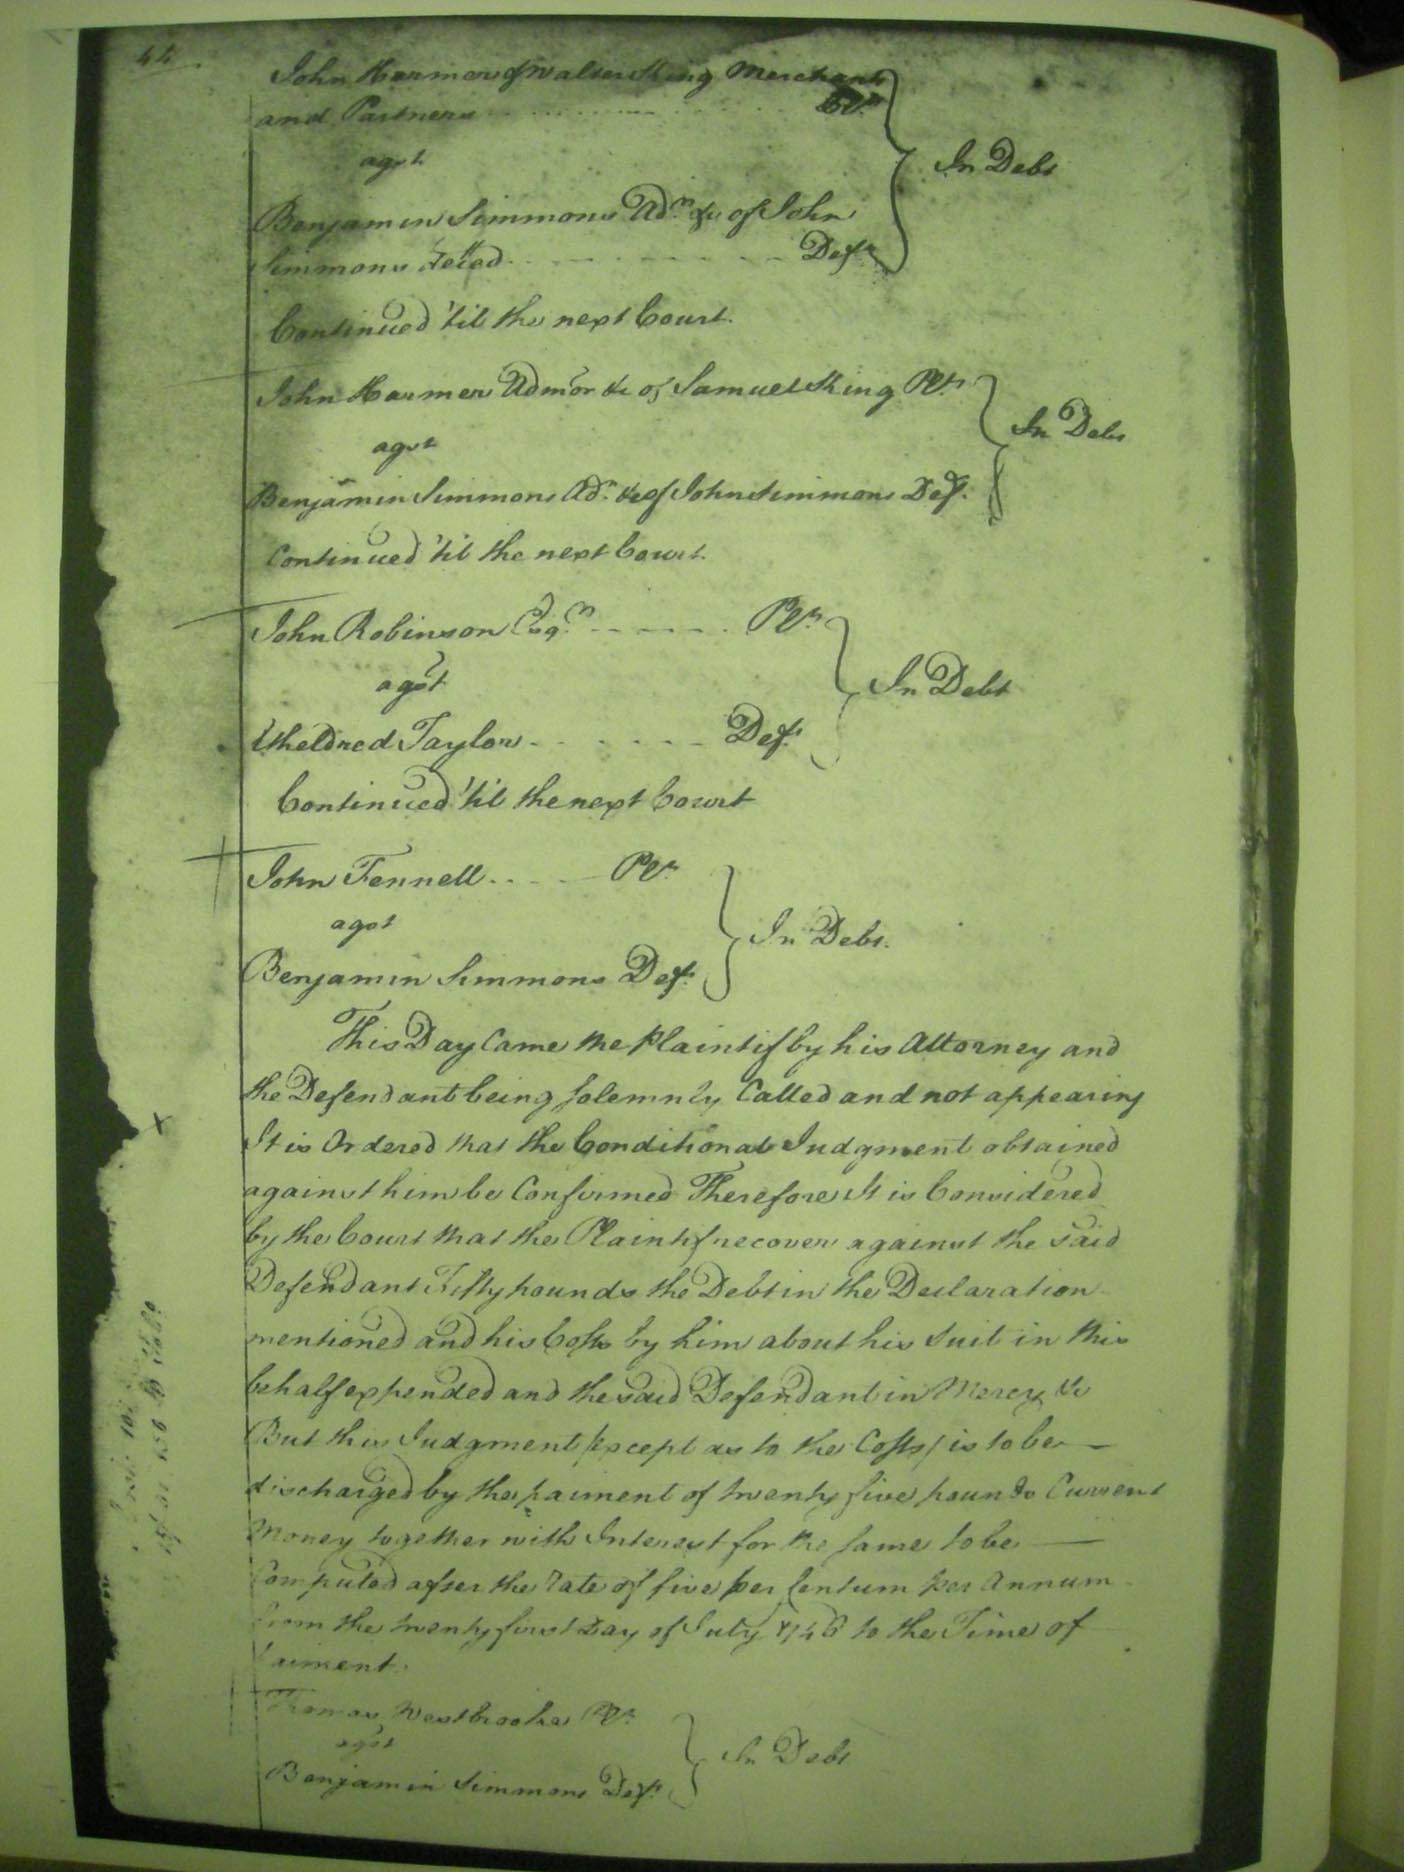 44
John Harmer & Walter King Merchants
and Partners Pl.ts
agst
Benjamin Simmons Ad.r &c of John
Simmons deced Def.t
In Debt
Continued 'til the next Court.
John Harmer Admor &c of Samuel King Pl.t
agst
Benjamin Simmons Ad.r &c of John Simmons Def.t
In Debt
Continued 'til the next Court.
John Robinson Esq.r Pl.t
agst
Etheldred Taylor Def.t
In Debt
Continued 'til the next Court
John Fennell Pl.t
agst
Benjamin Simmons Def.t
In Debt.
This Day Came the Plaintif by his Attorney and
the Defendant being solemnly Called and not appearing
It is Ordered that the Conditional Judgment obtained
against him be Confirmed Therefore It is Considered
by the Court that the Plaintif recover against the said
Defendant Fifty pounds the Debt in the Declaration
mentioned and his Costs by him about his Suit in this
behalf expended and the said Defendant in Mercy &c
But this Judgment (except as to the Costs) is to be
discharged by the paiment of twenty five pounds Current
Money together with Interest for the same to be
Computed after the rate of five per Centum per Annum
from the twenty first Day of July 1746 to the Time of
Paiment.
Thomas Westbrooke Pl.t
agst
Benjamin Simmons Def.t
In Debt